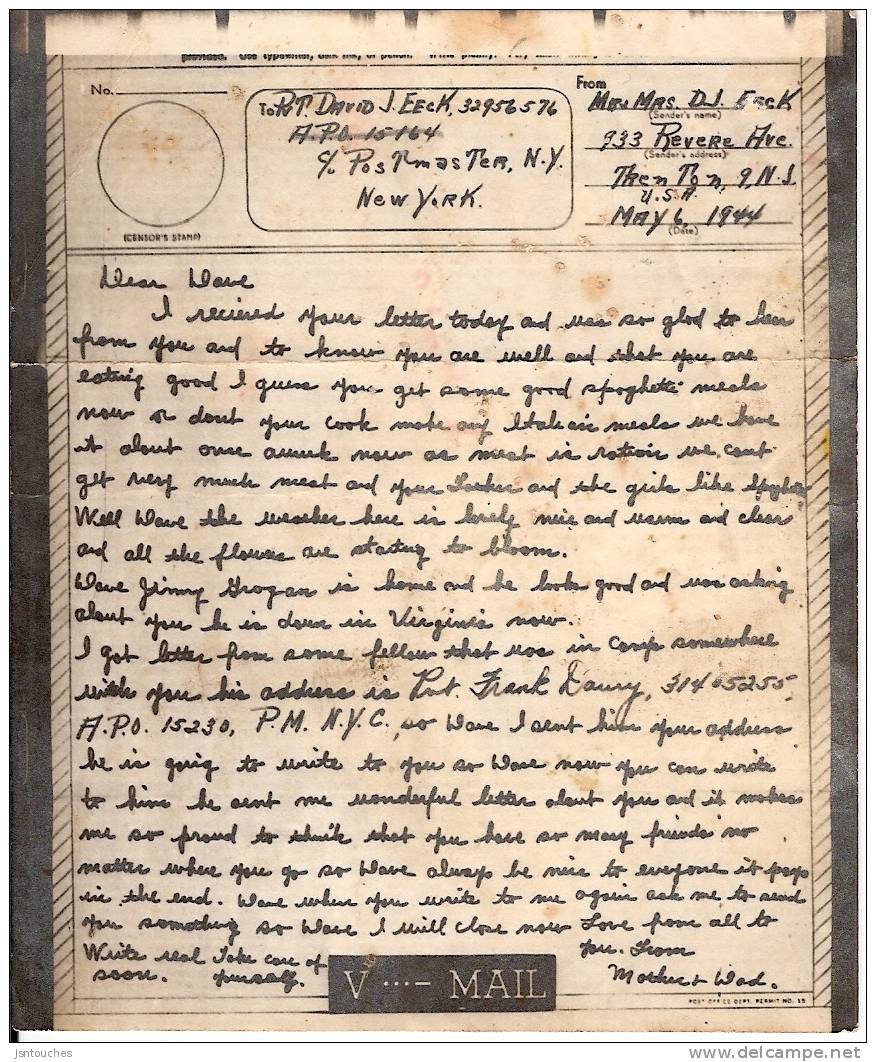 provided. Use typewriter, dark ink, or pencil. Write plainly.
No.
(CENSOR'S STAMP)
To Pvt. David J. Eeck, 32956576
A.P.O. 15164
c/o Postmaster, N.Y.
New York.
From
Mr. Mrs. D.J. Eeck
(Sender's name)
933 Revere Ave.
(Sender's address)
Trenton, 9, N.J.
U.S.A.
May 6, 1944
(Date)
Dear Dave
I recieved your letter today and was so glad to hear
from you and to know you are well and that you are
eating good I guess you get some good spaghetti meals
now or dont your cook make any Italian meals we have
it about once a week now as meat is ration we cant
get very much meat and your Father and the girls like spaghetti
Well Dave the weather here is lovely nice and warm and clear
and all the flowers are starting to bloom.
Dave Jimmy Grogan is home and he looks good and was asking
about you he is down in Virginia now.
I got letter from some fellow that was in camp somewhere
with you his address is Pvt. Frank Daury, 31405255
A.P.O. 15230, P.M. N.Y.C., so Dave I sent him your address
he is going to write to you so Dave now you can write
to him he sent me wonderful letter about you and it makes
me so proud to think that you have so many friends no
matter where you go so Dave always be nice to everyone it pays
in the end. Dave when you write to me again ask me to send
you something so Dave I will close now Love from all to
you. From
Mother & Dad.
Write real soon.
Take care of yourself.
V ···— MAIL
POST OFFICE DEPT. PERMIT NO. 15
jsntouches
www.delcampe.net